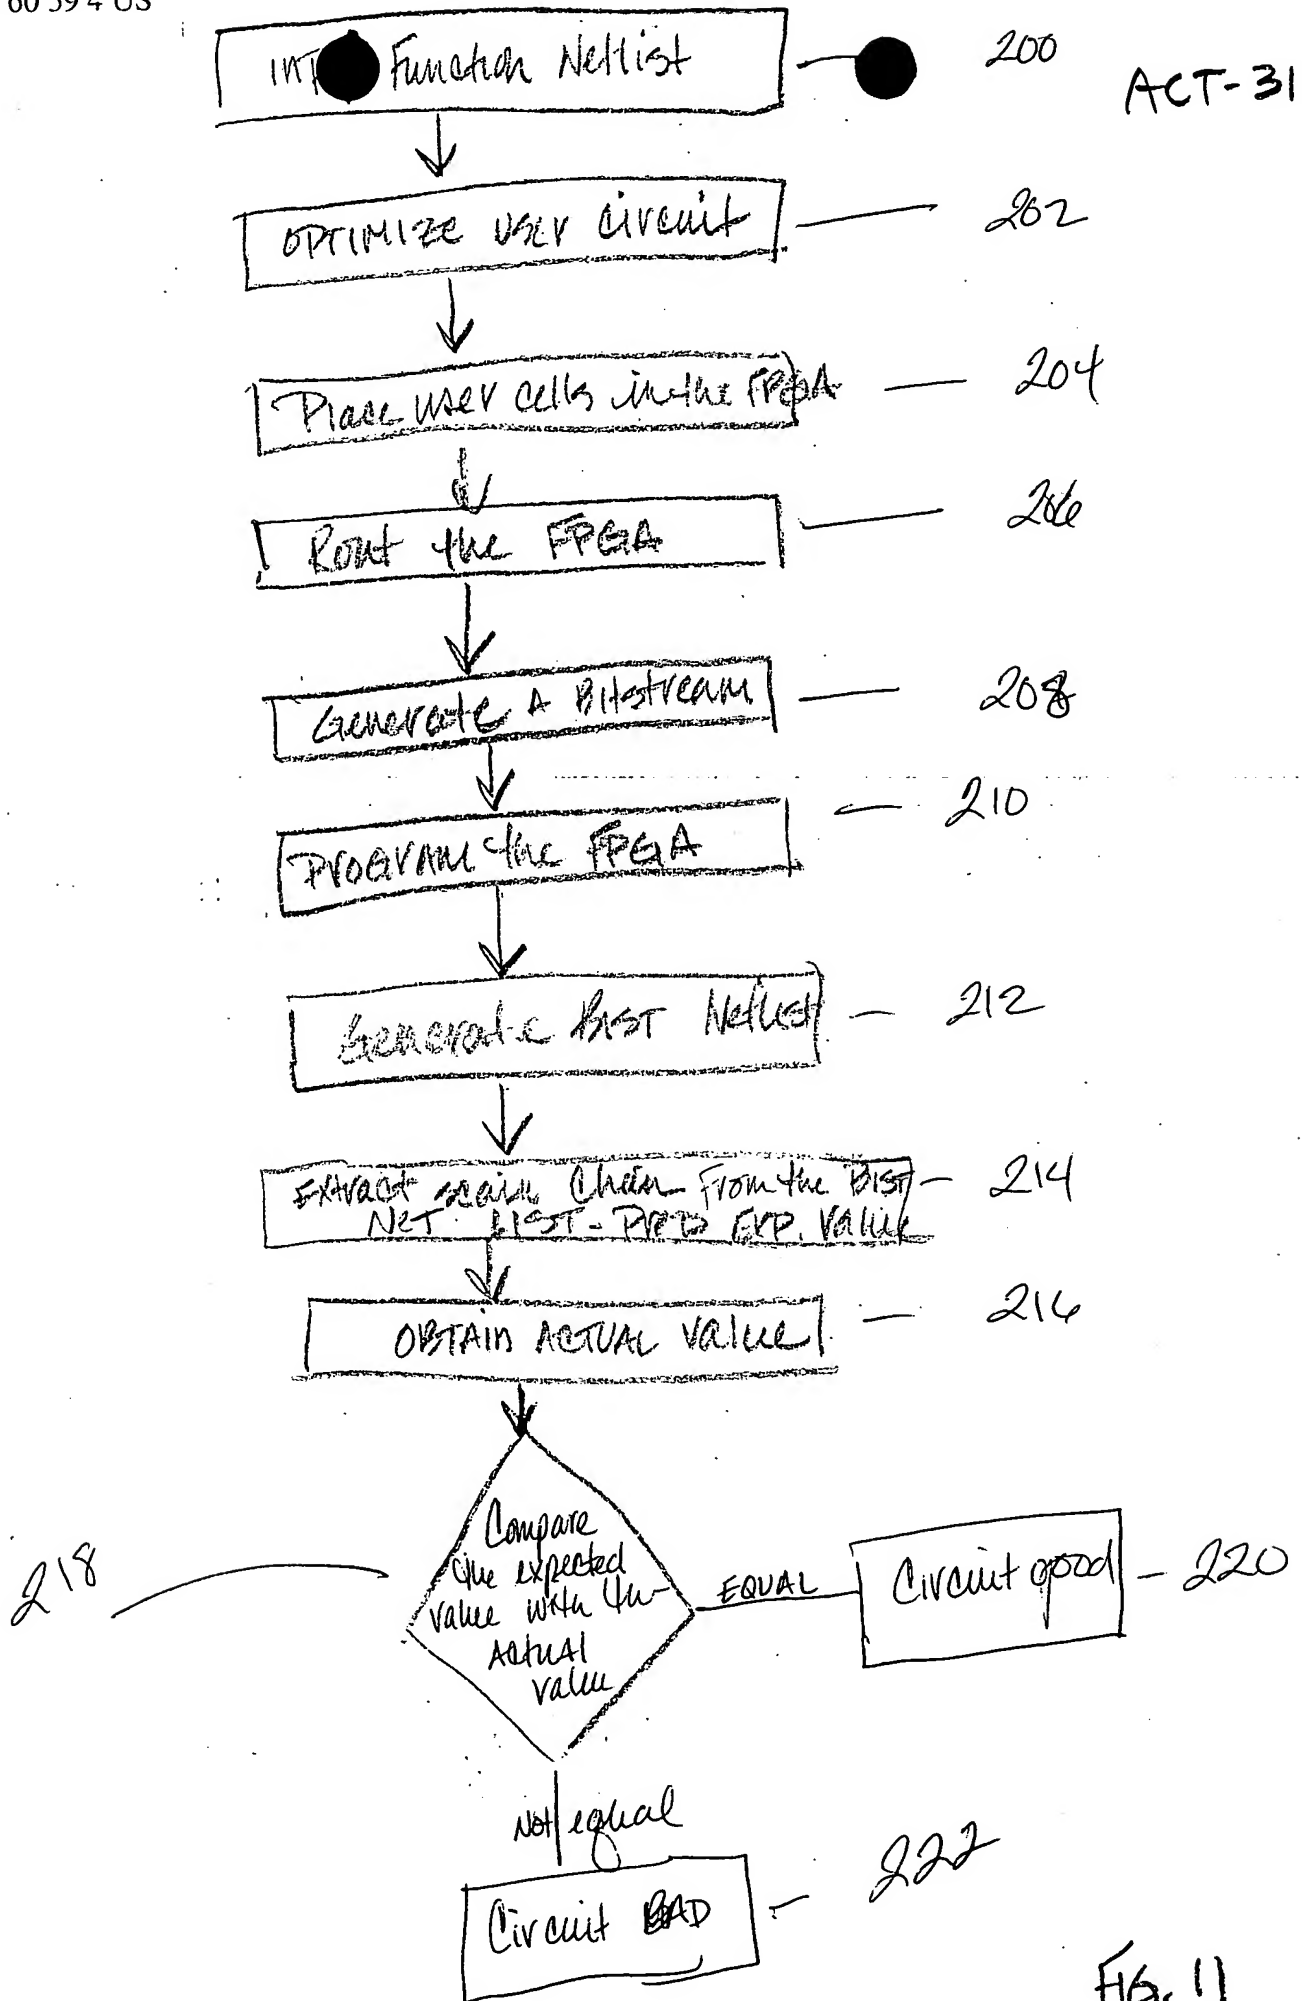 200
ACT-31
Function Netlist
OPTIMIZE USER circuit
202
Place user cells in the FPGA
204
Rout the FPGA
206
Generate A Bitstream
208
210
PROGRAM the FPGA
Generate BIST Netlist
212
Extract scain Chain From the BIST
214
NET LIST - Exp. Value
OBTAIN ACTUAL value
216
218
Compare
the expected
value with the
Actual
value
EQUAL
Circuit good
220
Not equal
Circuit BAD
222
FIG. 11